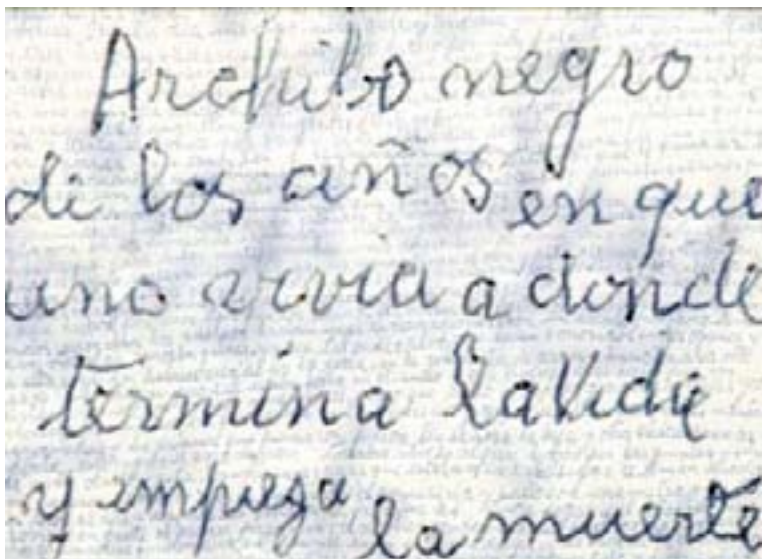 Archibo negro
di los años en que
uno vivia a donde
termina la Vida
y empieza la muerte